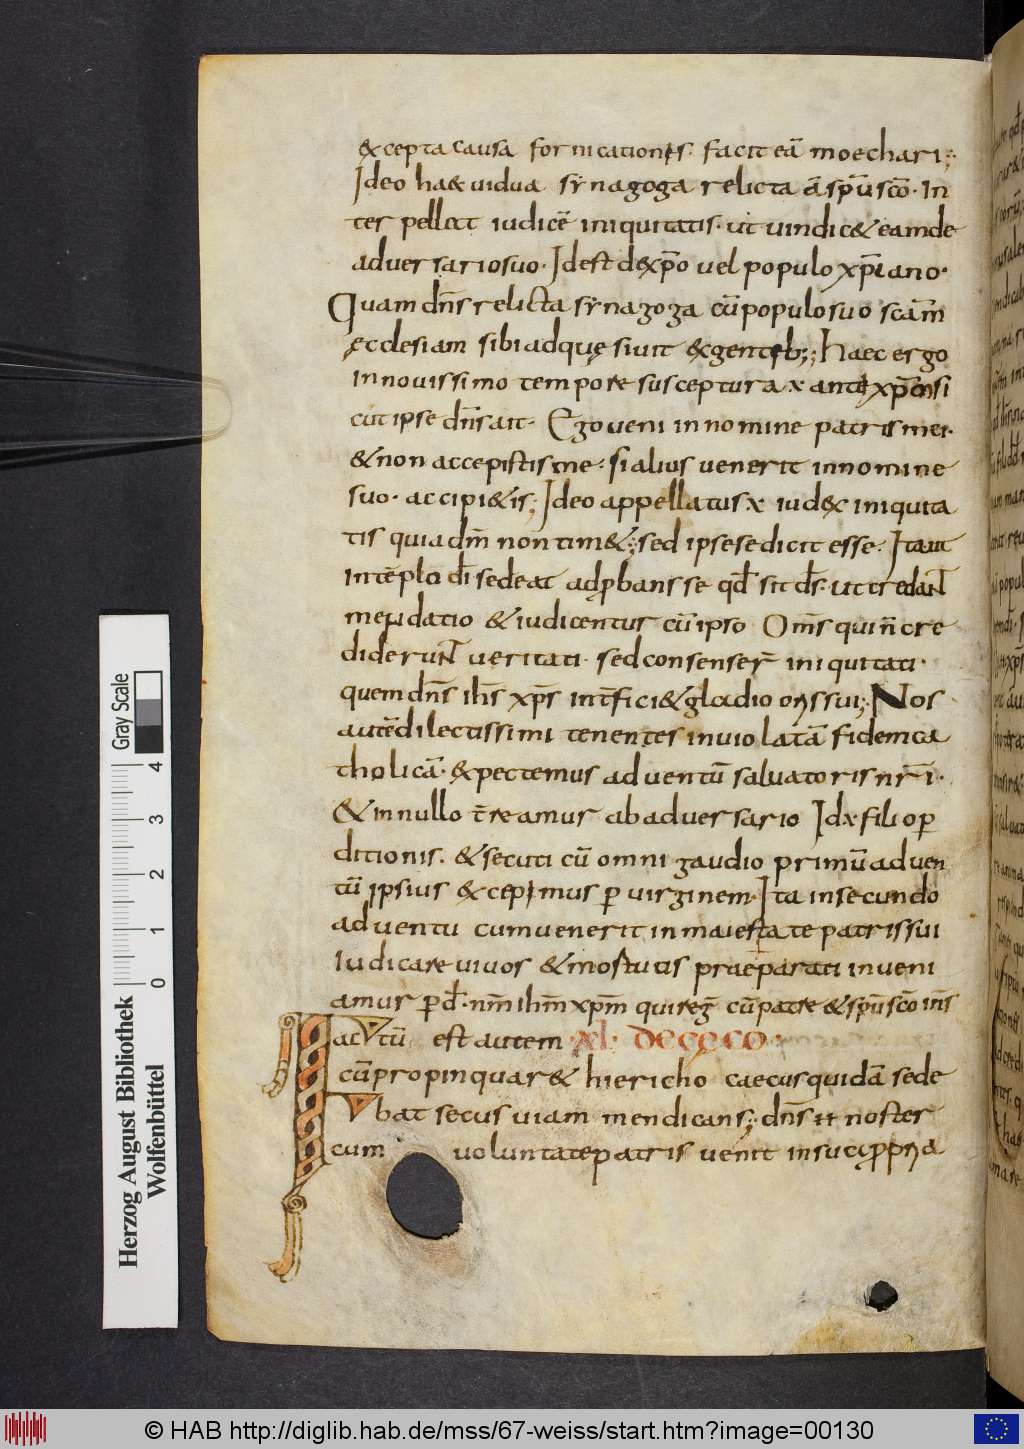 & cepta causa fornicationis· facit eā moechari;
Ideo haec uidua synagoga relicta a spū sc̄o· In
ter pellat iudicē iniquitatis· ut uindic& eam de
aduersario suo· Id est de xp̄o uel populo xp̄iano·
Quam dn̄s relicta synagoga cū populo suo scām
ęcclesiam sibi adquęsiuit &gentib;; Haec ergo
In nouissimo tempore susceptura x antixp̄m si
cut ipse dn̄s ait· Ego ueni in nomine patris mei·
& non accepistis me· si alius uenerit in nomine
suo· accipi&is; Ideo appellatus x iudex iniquita
tis quia dm̄ non tim&; sed ipse se dicit esse· Ita ut
In tēplo dī sedeat adprobans se qd̄ sit ds̄· ut credant
mendatio & iudicentur cū ipso Om̄s qui n̄ cre
diderunt ueritati· sed consenser̄ iniquitati·
quem dn̄s ih̄s xp̄s intfici& gladio oris sui; Nos
autē dilectissimi tenentes inuiolatā fidem ca
tholicā· &pectemus aduentū saluatoris nr̄i·
& in nullo t̄reamur ab aduersario Id x filio per
ditionis· & secuti cū omni gaudio primū aduen
tū ipsius &cepimus p uirginem· Ita in secundo
aduentu cum uenerit in maiestate patris sui
Iudicare uiuos & mortuos praeparati inueni
amur p d· nm̄ ihm̄ xpm̄ qui regn̄ cū patre & spū sc̄o in s̄
Factū est autem XL· DE CECO·
cū propinquar& hiericho caecus quidā sede
bat secus uiam mendicans; dn̄s noster
cum uoluntate patris uenit in sua propria
Herzog August Bibliothek
Wolfenbüttel
Gray Scale
0 1 2 3 4
© HAB http://diglib.hab.de/mss/67-weiss/start.htm?image=00130